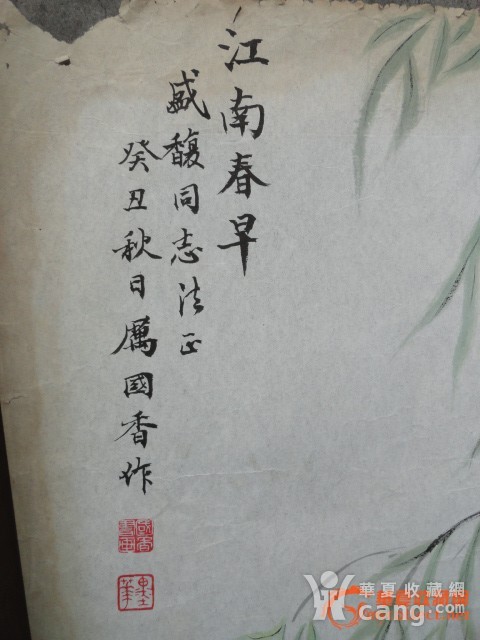 江南春早
盛馥同志法正
癸丑秋日厲國香作
國香書画
華夏收藏網
cang.com